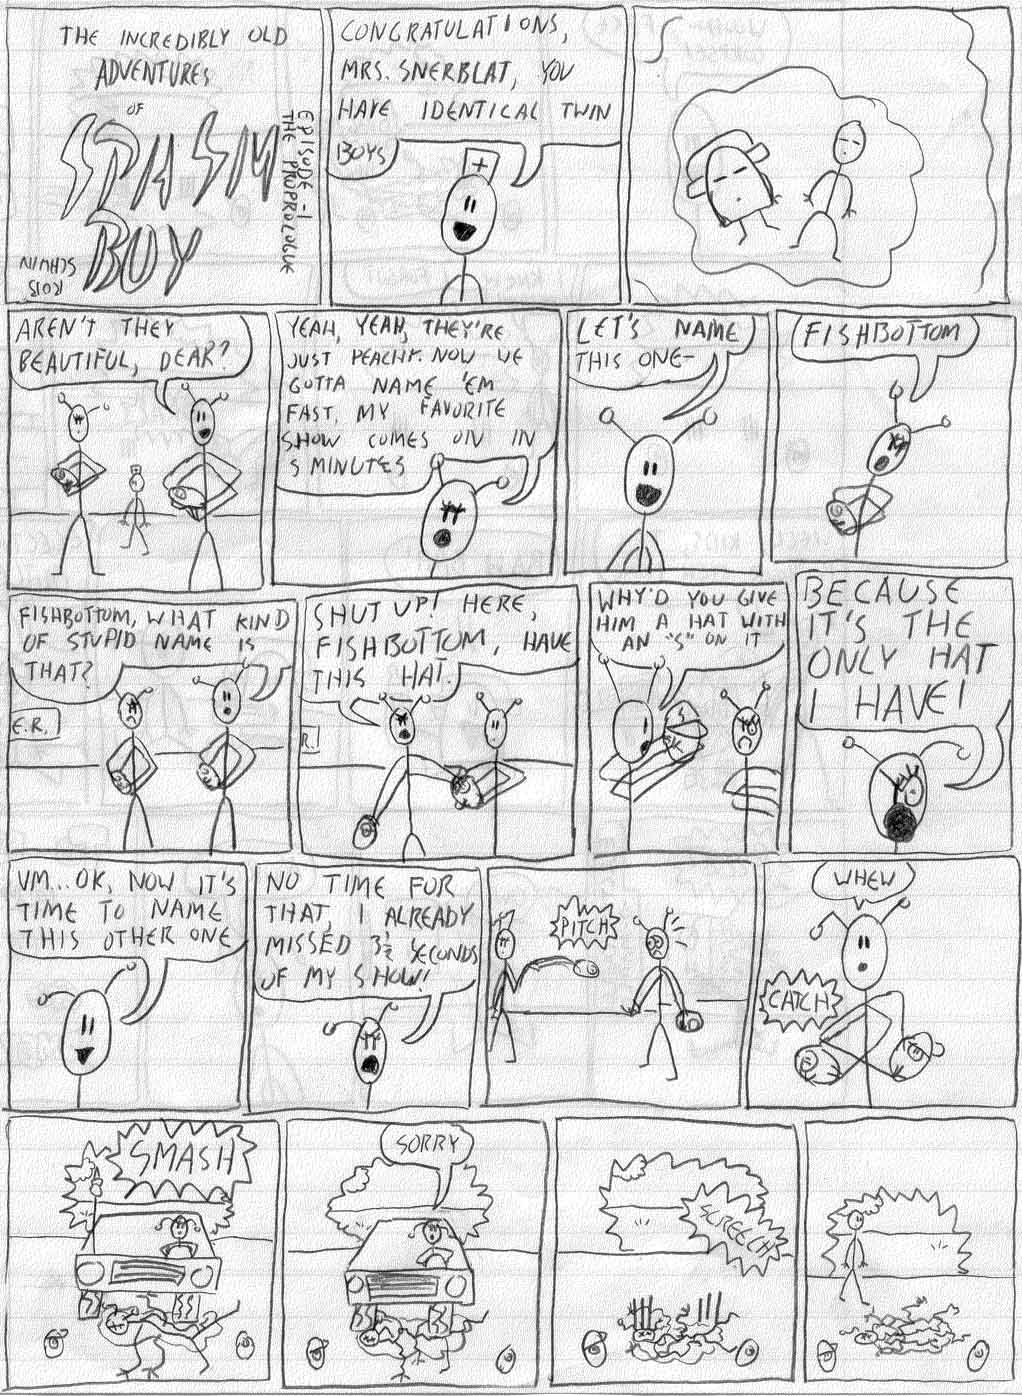 THE INCREDIBLY OLD
ADVENTURES
OF
SPASIM
BOY
EPISODE -1
THE PROPROLOGUE
CONGRATULATIONS,
MRS. SNERBLAT, YOU
HAVE IDENTICAL TWIN
BOYS
AREN'T THEY
BEAUTIFUL, DEAR?
YEAH, YEAH, THEY'RE
JUST PEACHY. NOW WE
GOTTA NAME 'EM
FAST, MY FAVORITE
SHOW COMES ON IN
5 MINUTES
LET'S NAME
THIS ONE-
FISHBOTTOM
FISHBOTTOM, WHAT KIND
OF STUPID NAME IS
THAT?
E.R.
SHUT UP! HERE,
FISHBOTTOM, HAVE
THIS HAT.
R.
WHY'D YOU GIVE
HIM A HAT WITH
AN "S" ON IT
S
BECAUSE
IT'S THE
ONLY HAT
I HAVE!
UM...OK, NOW IT'S
TIME TO NAME
THIS OTHER ONE
NO TIME FOR
THAT, I ALREADY
MISSED 3½ SECONDS
OF MY SHOW!
PITCH
WHEW
CATCH
SMASH
SORRY
SCREECH